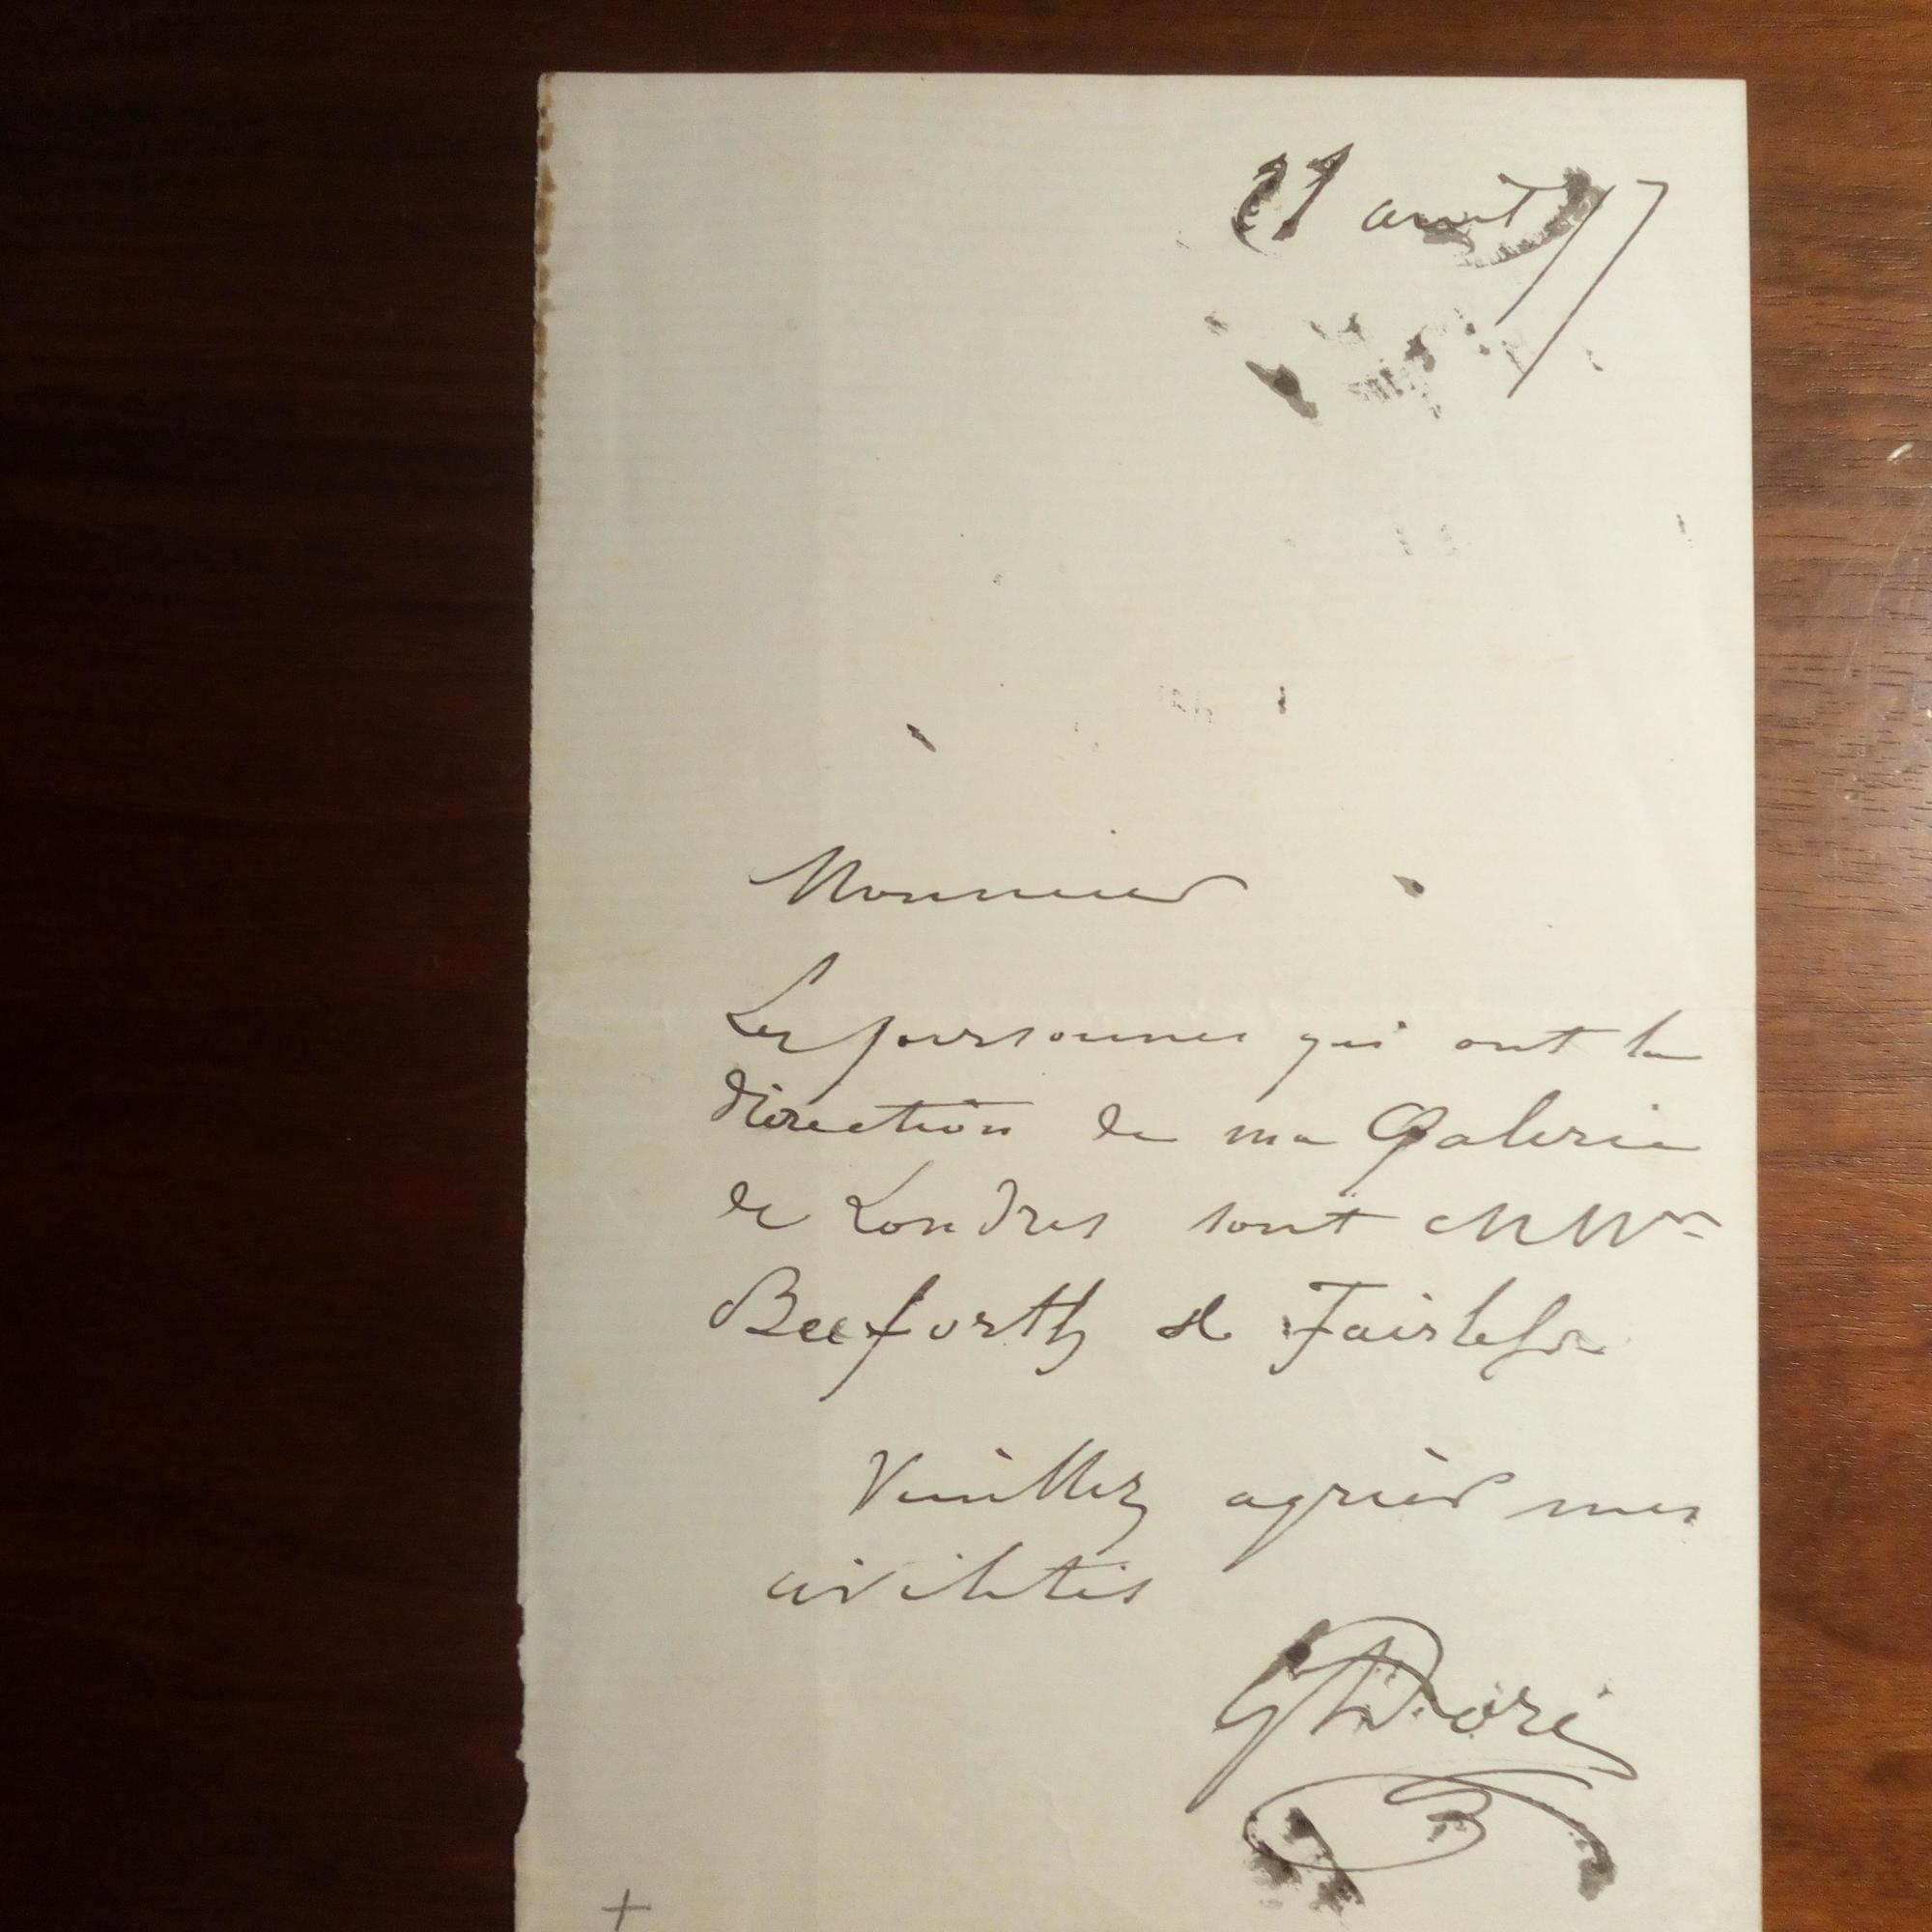 21 août 77
Monsieur
Les personnes qui ont la
direction de ma Galerie
de Londres sont MMrs
Beeforth et Fairless
Veuillez agréer mes
civilités
G Doré